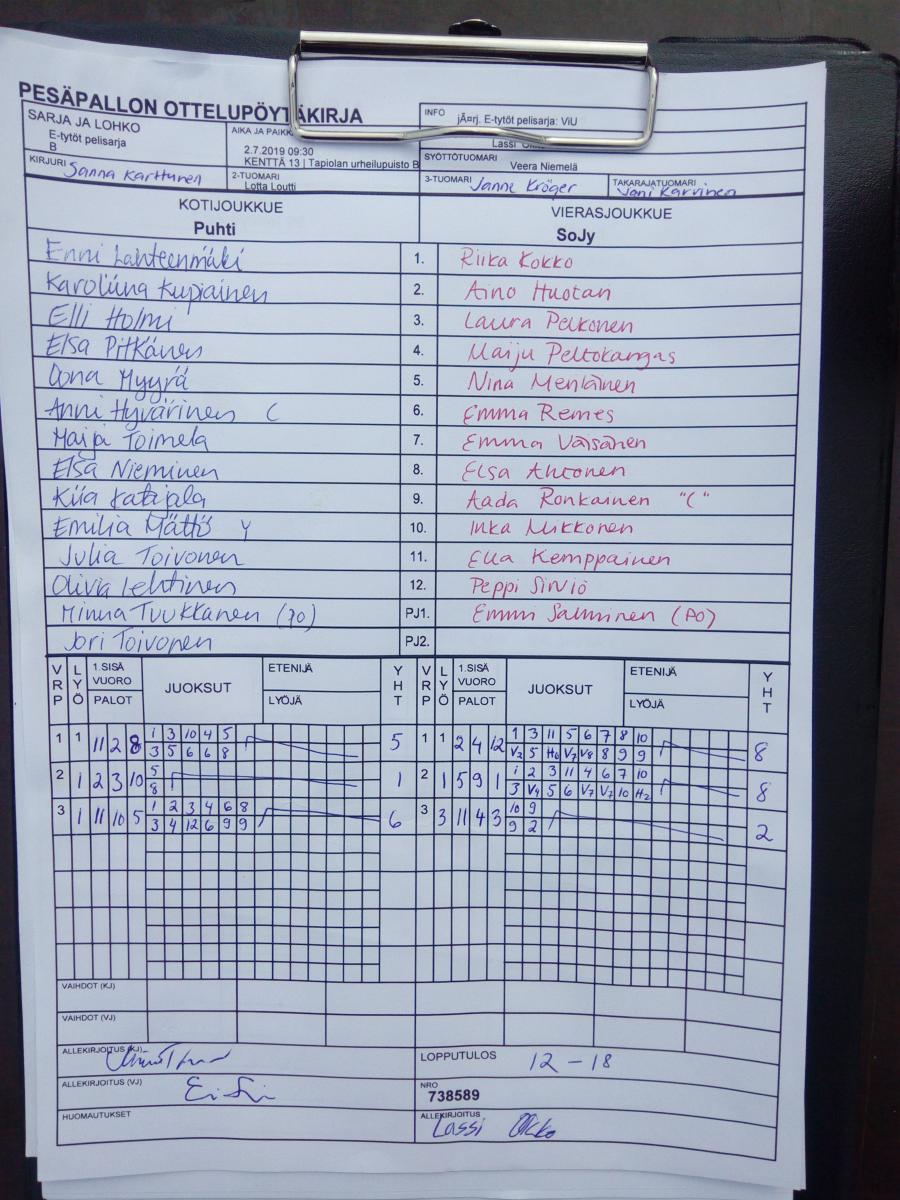 PESÄPALLON OTTELUPÖYTÄKIRJA
SARJA JA LOHKO
E-tytöt pelisarja
B
AIKA JA PAIKK
2.7.2019 09:30
KENTTÄ 13 | Tapiolan urheilupuisto B
INFO
jÄ¤rj. E-tytöt pelisarja: ViU
Lassi
SYÖTTÖTUOMARI
Veera Niemelä
KIRJURI Sanna Karttunen
2-TUOMARI
Lotta Loutti
3-TUOMARI Janne Kröger
TAKARAJATUOMARI
Jani Karvinen
KOTIJOUKKUE
Puhti
VIERASJOUKKUE
SoJy
Enni Lahteenmäki 1. Riika Kokko
Karoliina Kupiainen 2. Aino Huotari
Elli Holmi 3. Laura Pelkonen
Elsa Pitkänen 4. Maiju Peltokangas
Oona Myyrä 5. Nina Menlainen
Anni Hyvärinen C 6. Emma Remes
Maija Toimela 7. Emma Väisänen
Elsa Nieminen 8. Elsa Ahtonen
Kiia Katajala 9. Aada Ronkainen "C"
Emilia Mättö Y 10. Inka Mikkonen
Julia Toivonen 11. Ella Kemppainen
Olivia Lehtinen 12. Peppi Sirviö
Minna Tuukkanen (PO) PJ1. Emmi Salminen (PO)
Jori Toivonen PJ2.
VRP LYÖ 1.SISÄ VUORO PALOT JUOKSUT ETENIJÄ LYÖJÄ YHT VRP LYÖ 1.SISÄ VUORO PALOT JUOKSUT ETENIJÄ LYÖJÄ YHT
1 3 10 4 5 1 3 11 5 6 7 8 10
1 1 11 2 8 5 1 1 2 4 12 8
3 5 6 6 8 V2 5 H6 V7 V8 8 9 9
5 1 2 3 11 4 6 7 10
2 1 2 3 10 1 2 1 5 9 1 8
8 3 V4 5 6 V7 V7 10 H2
1 2 3 4 6 8 10 9
3 1 11 10 5 6 3 3 11 4 3 2
3 4 12 6 9 9 9 2
VAIHDOT (KJ)
VAIHDOT (VJ)
ALLEKIRJOITUS (KJ)
LOPPUTULOS 12 - 18
ALLEKIRJOITUS (VJ)
NRO
738589
HUOMAUTUKSET
ALLEKIRJOITUS
Lassi Okko